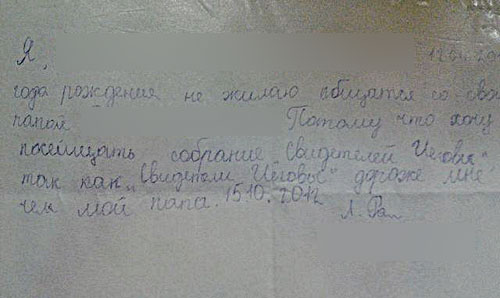 Я,
года рождения не жилаю общатся со
папой Потому что хочу
посещать собрание „Свидетелей Иеговы"
так как „Свидетели Иеговы" дороже мне
чем мой папа. 15.10.2012